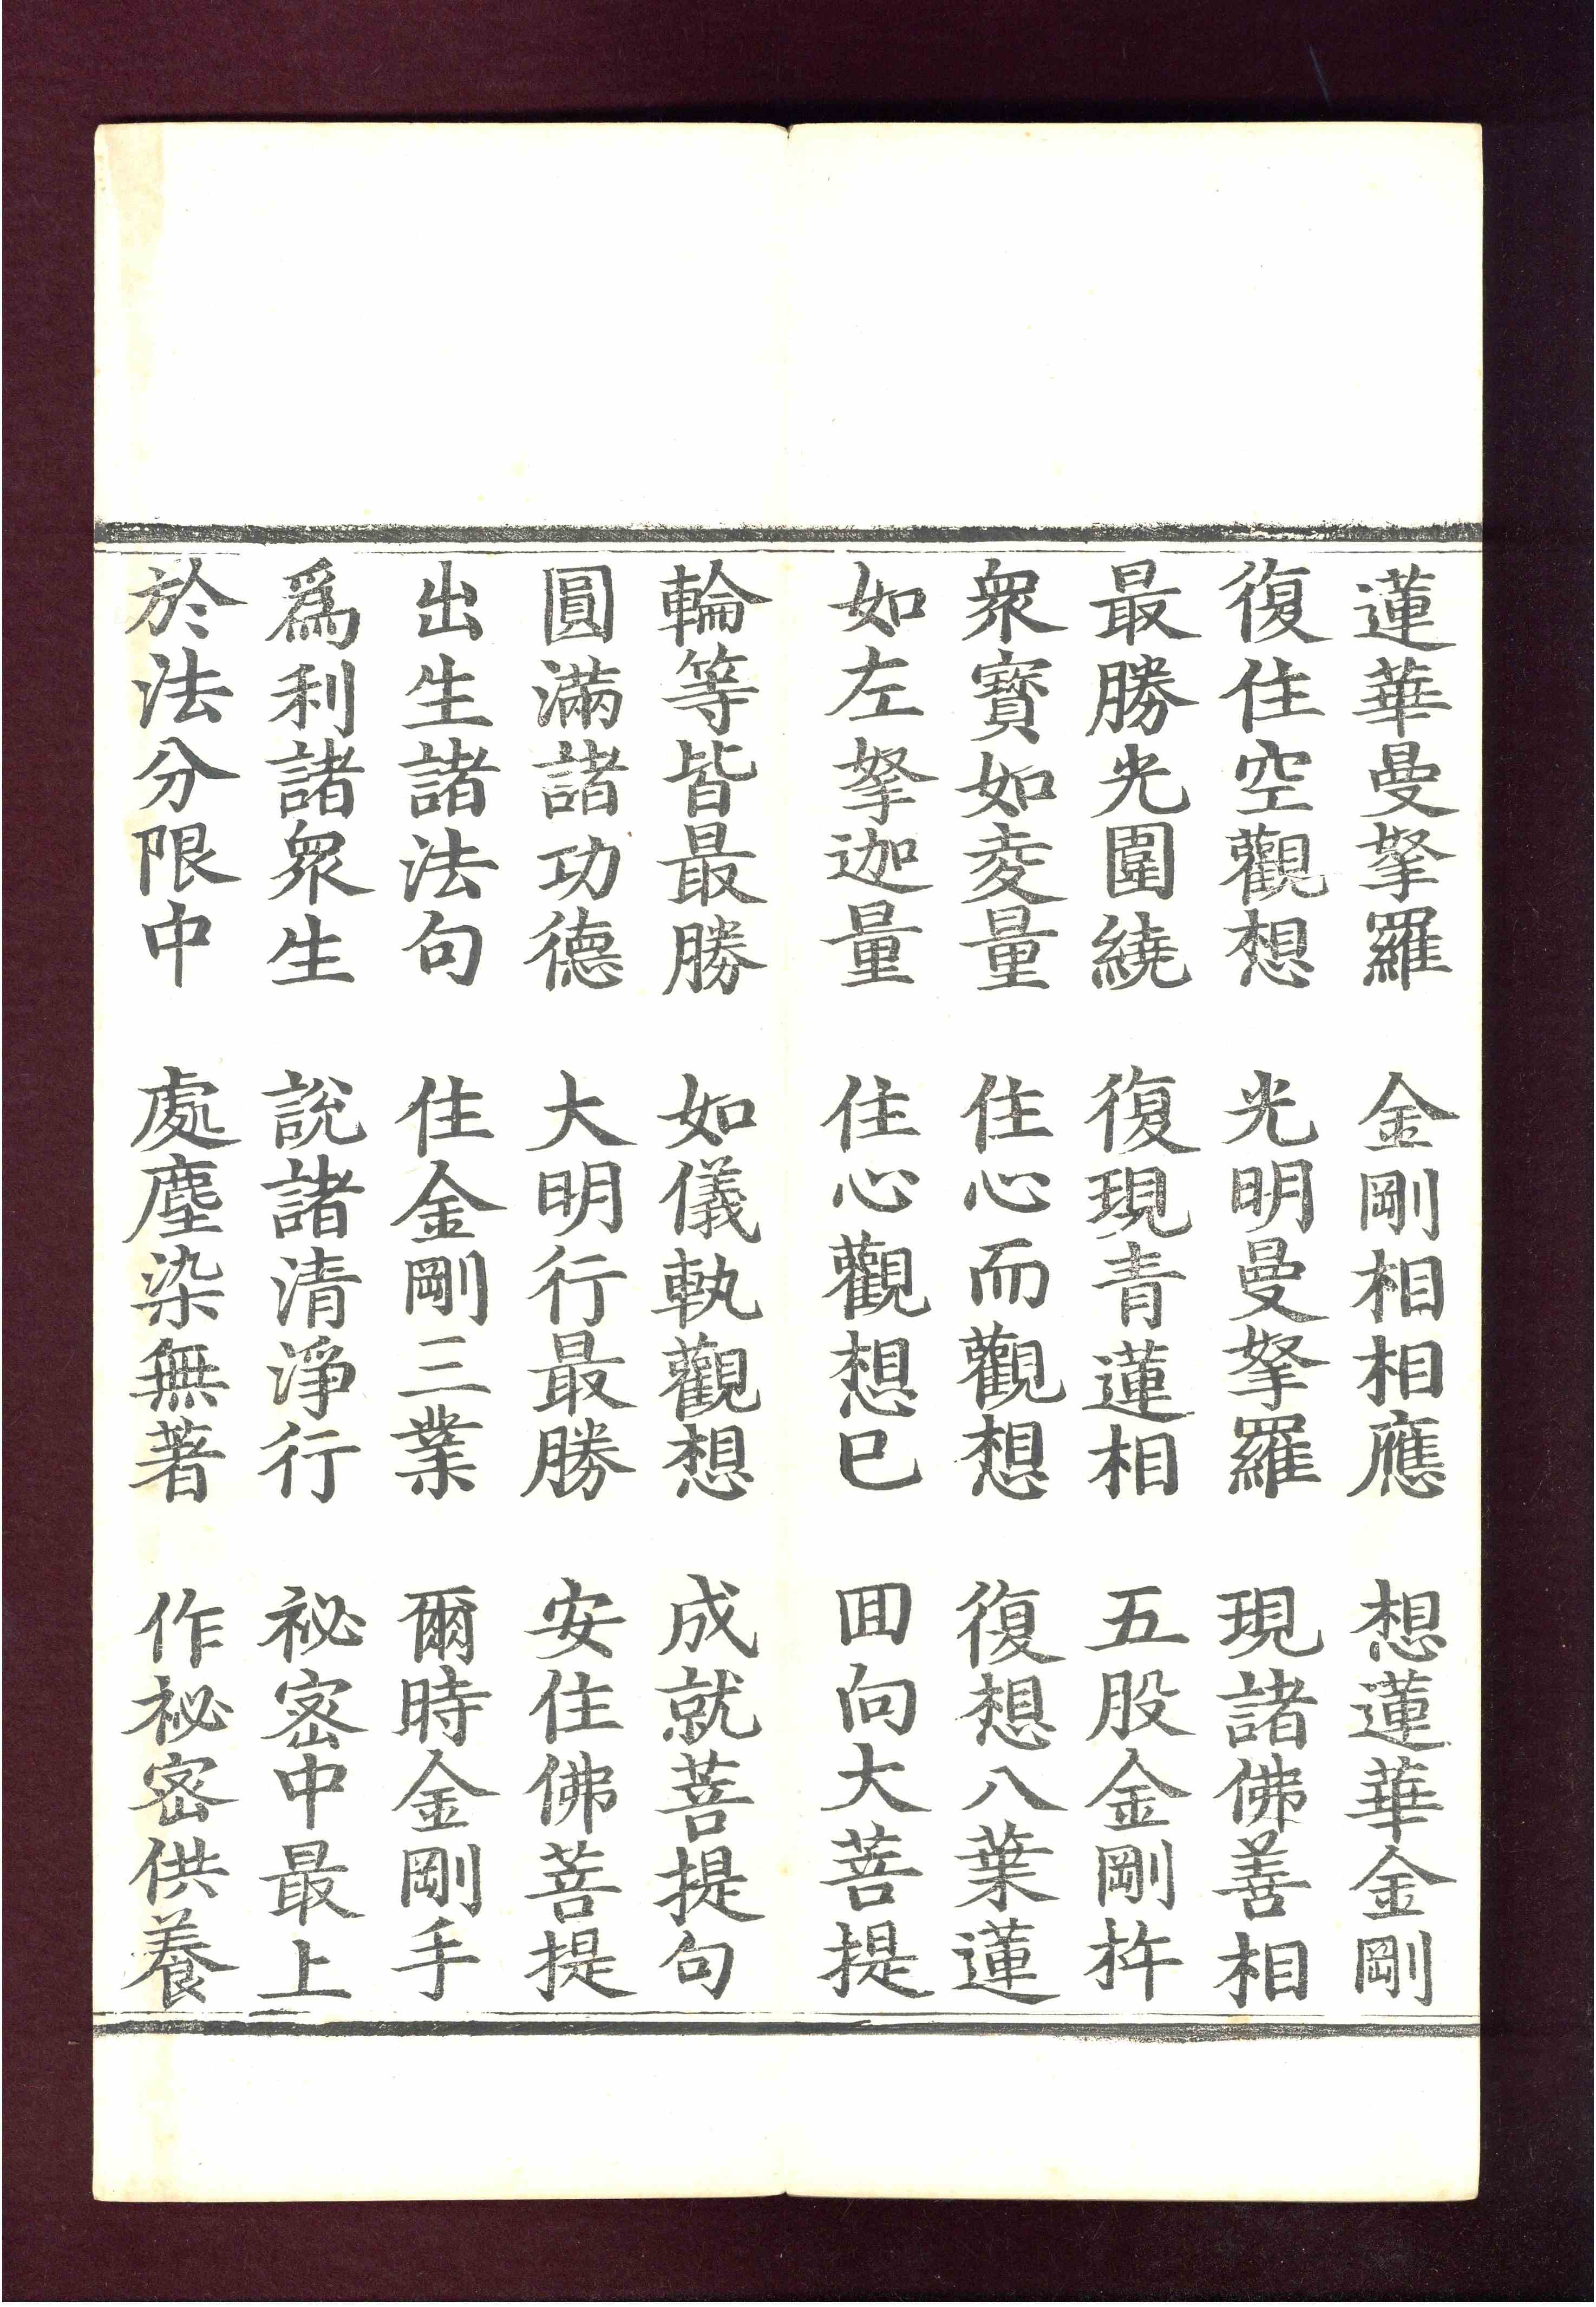 蓮華曼拏羅　金剛相相應　想蓮華金剛
復住空觀想　光明曼拏羅　現諸佛善相
最勝光圍繞　復現青蓮相　五股金剛杵
衆寶如麥量　住心而觀想　復想八葉蓮
如左拏迦量　住心觀想已　回向大菩提
輪等皆最勝　如儀軌觀想　成就菩提句
圓滿諸功德　大明行最勝　安住佛菩提
出生諸法句　住金剛三業　爾時金剛手
爲利諸衆生　說諸清淨行　祕密中最上
於法分限中　處塵染無著　作祕密供養